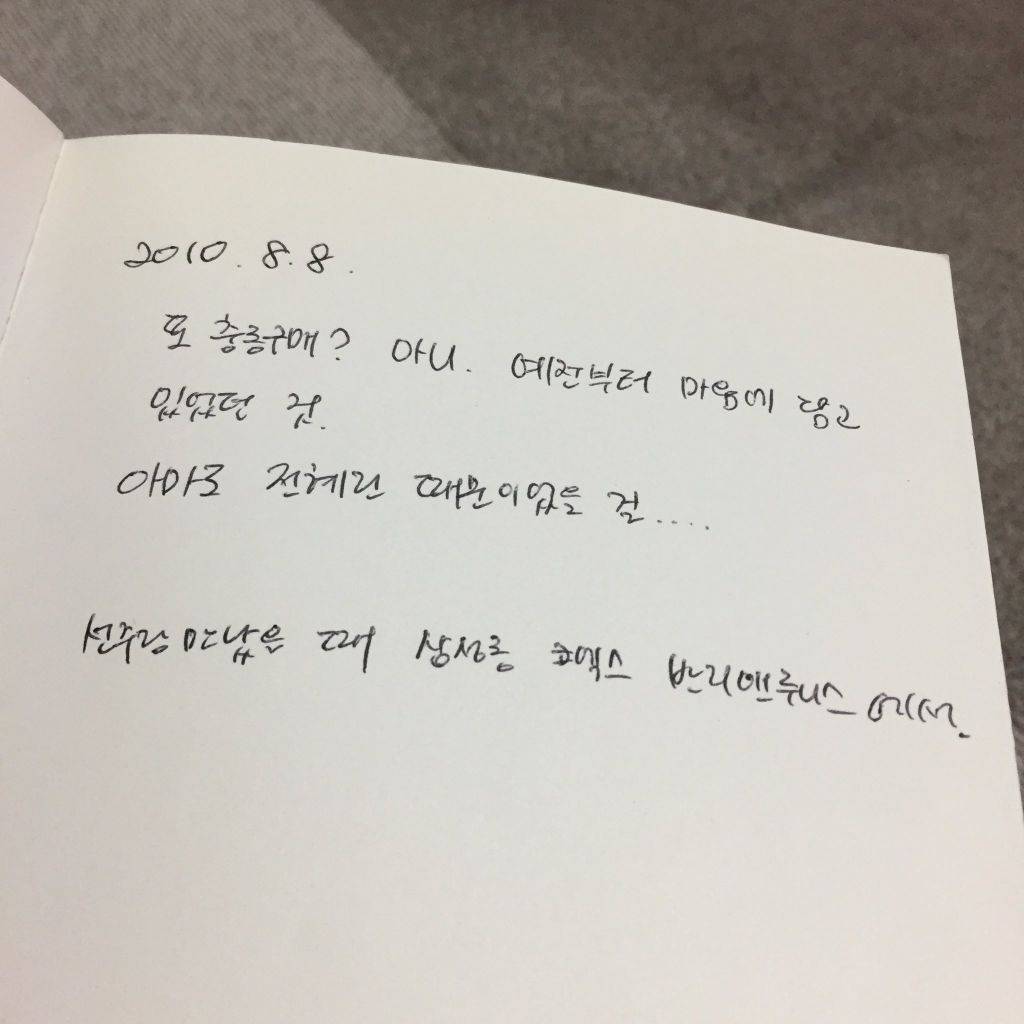 2010. 8. 8.
또 충동구매? 아니. 예전부터 마음에 담고
있었던 것.
아마도 전혜린 때문이었을 걸....
선주랑 만났을 때 삼성동 코엑스 반디앤루니스에서.